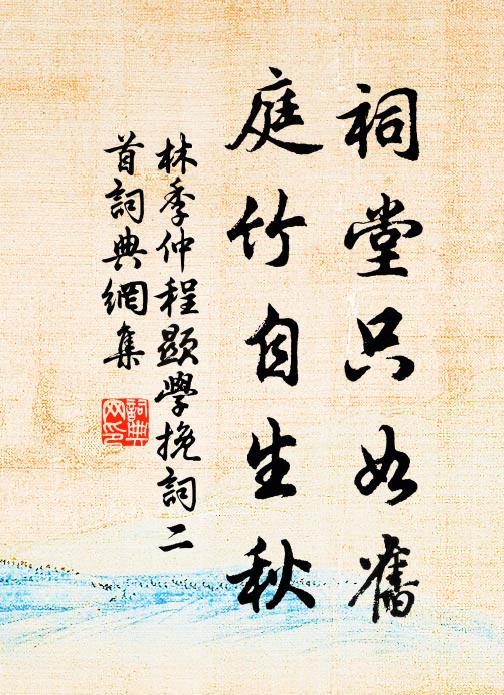 祠堂只如舊
庭竹自生秋
林季仲程顯學挽詞二
首詞典網集
詞典
网印